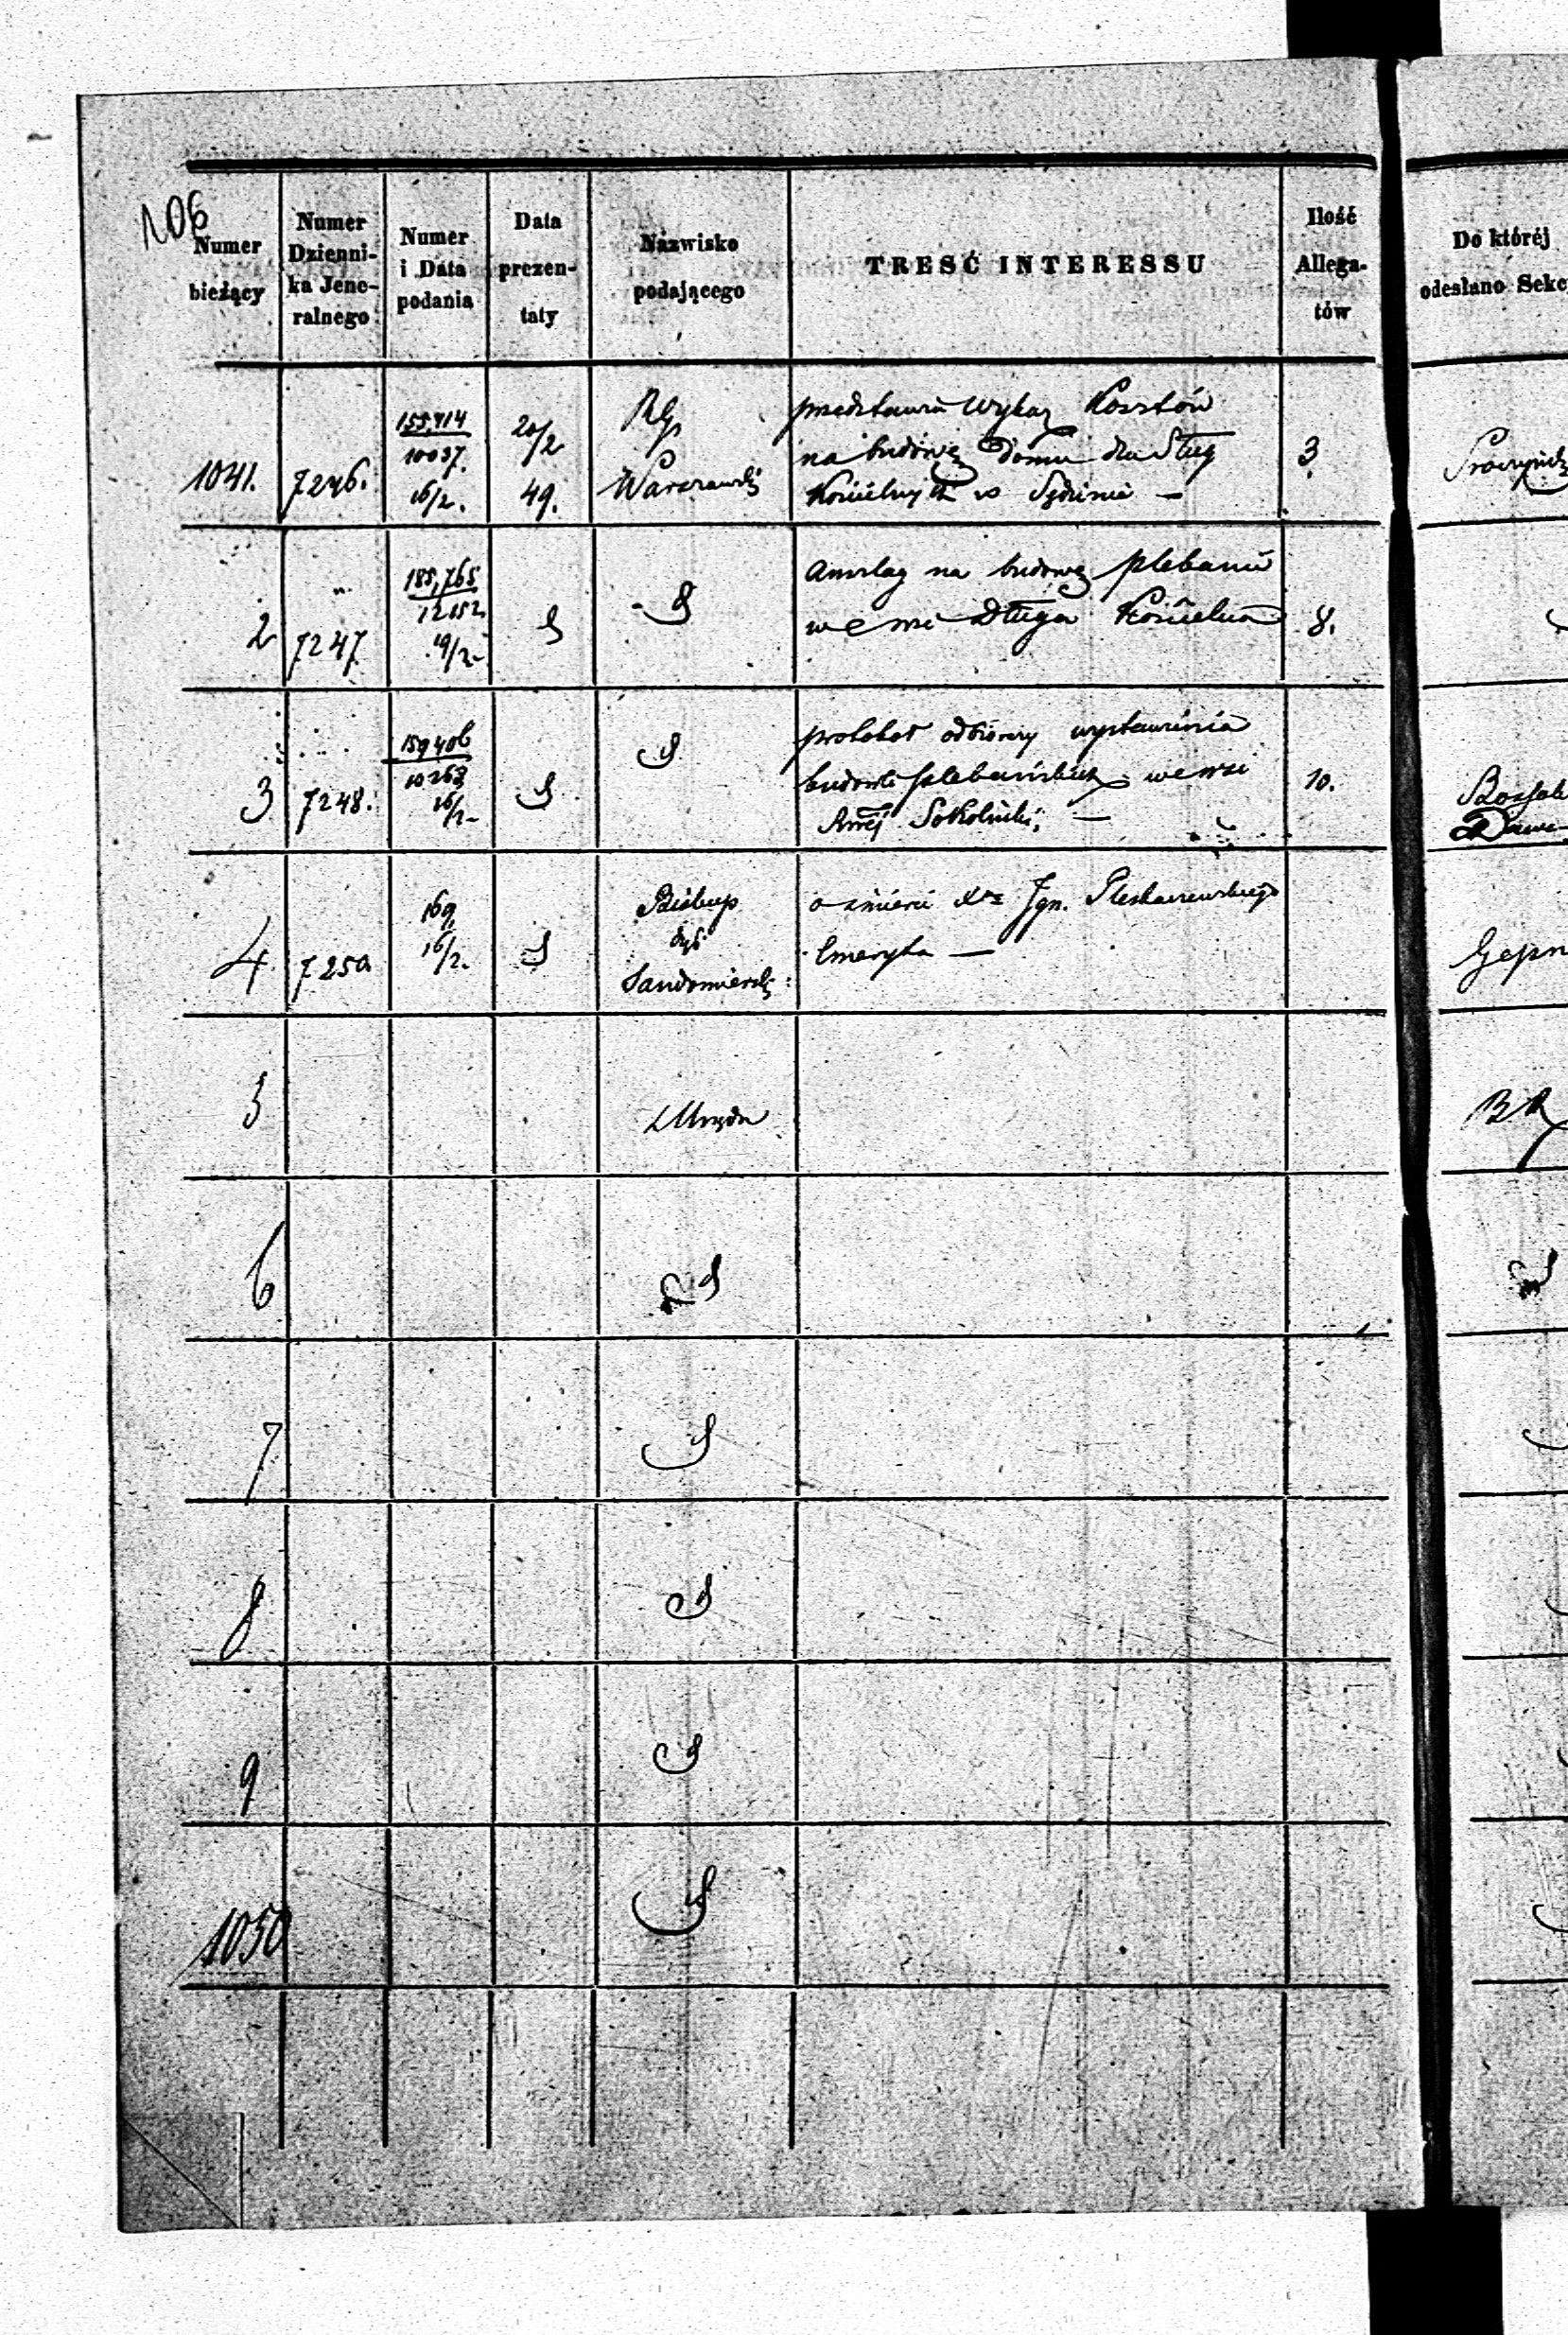 106
Numer bieżący
Numer Dzienni- ka Jene- ralnego
Numer i Data podania
Data prezen- taty
Nazwisko podającego
TREŚĆ INTERESSU
Ilość Allega- tów
Do któréj odesłano Sekc
1041.
7246.
155,414
10037.
16/2.
20/2
49.
RG
Warszawski
przedstawia wykaz Kosztów
na budowę Domu dla Sług
Kościelnych w —
3
2
7247
185,765
12152
19/2
Anszlag na budowę plebanii
we wsi Długa Kościelna
8.
3
7248.
159406
10263
16/2
protokół odbiorczy wystawienia
budowli plebańskich we wsi
Sokolniki, —
10.
4
7250
169,
16/2.
Biskup
Dyec
Sandomierski
o śmierci Xa Ign.
Emeryta —
5
z Urzędu
BR
6
7
8
9
1050